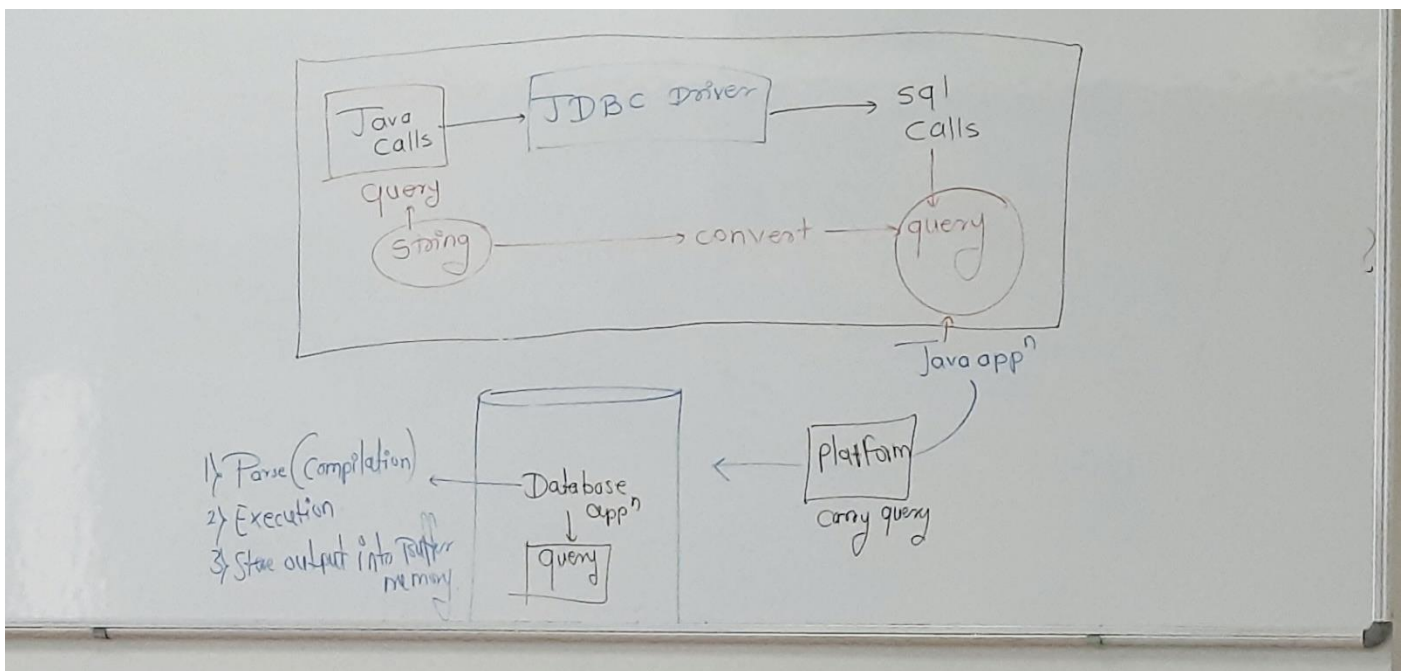 Java
calls
JDBC Driver
sql
calls
query
string
convert
query
Java appⁿ
Platform
carry query
Database
appⁿ
query
1) Parse (Compilation)
2) Execution
3) Store output into Buffer
memory